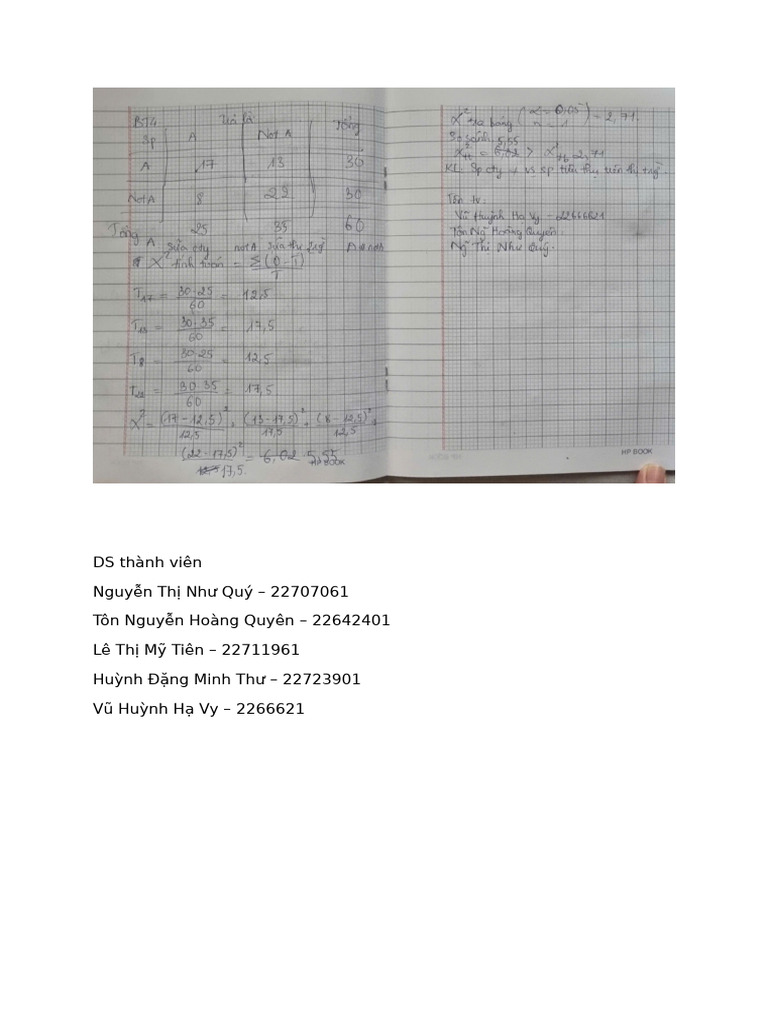 BT4 Trả lời
Sp A Not A Tổng
A 17 13 30
Not A 8 22 30
Tổng 25 35 60
A sữa cty not A sữa thị trg
X² tính toán = Σ(O - T)² / T
T17 = 30.25 / 60 = 12,5
T13 = 30.35 / 60 = 17,5
T8 = 30.25 / 60 = 12,5
T22 = 30.35 / 60 = 17,5
X² = (17 - 12,5)² / 12,5 + (13 - 17,5)² / 17,5 + (8 - 12,5)² / 12,5 +
(22 - 17,5)² / 17,5 = 6,02 5,55
HP BOOK
X² tra bảng (α = 0,05 n = 1) = 2,71.
So sánh 5,55
X²tt = 6,02 > X²tb = 2,71
KL: Sp cty # vs sp tiêu thụ trên thị trg.
Tên tv.
Vũ Huỳnh Hạ Vy - 22666621
Tôn Ng̃ Hoàng Quyên.
Ng̃ Thị Như Quý.
HP BOOK
DS thành viên
Nguyễn Thị Như Quý – 22707061
Tôn Nguyễn Hoàng Quyên – 22642401
Lê Thị Mỹ Tiên – 22711961
Huỳnh Đặng Minh Thư – 22723901
Vũ Huỳnh Hạ Vy – 2266621